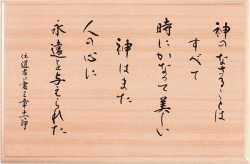 神のなさることは
すべて
時にかなって美しい
神はまた
人の心に
永遠を与えられた
伝道者の書三章十一節